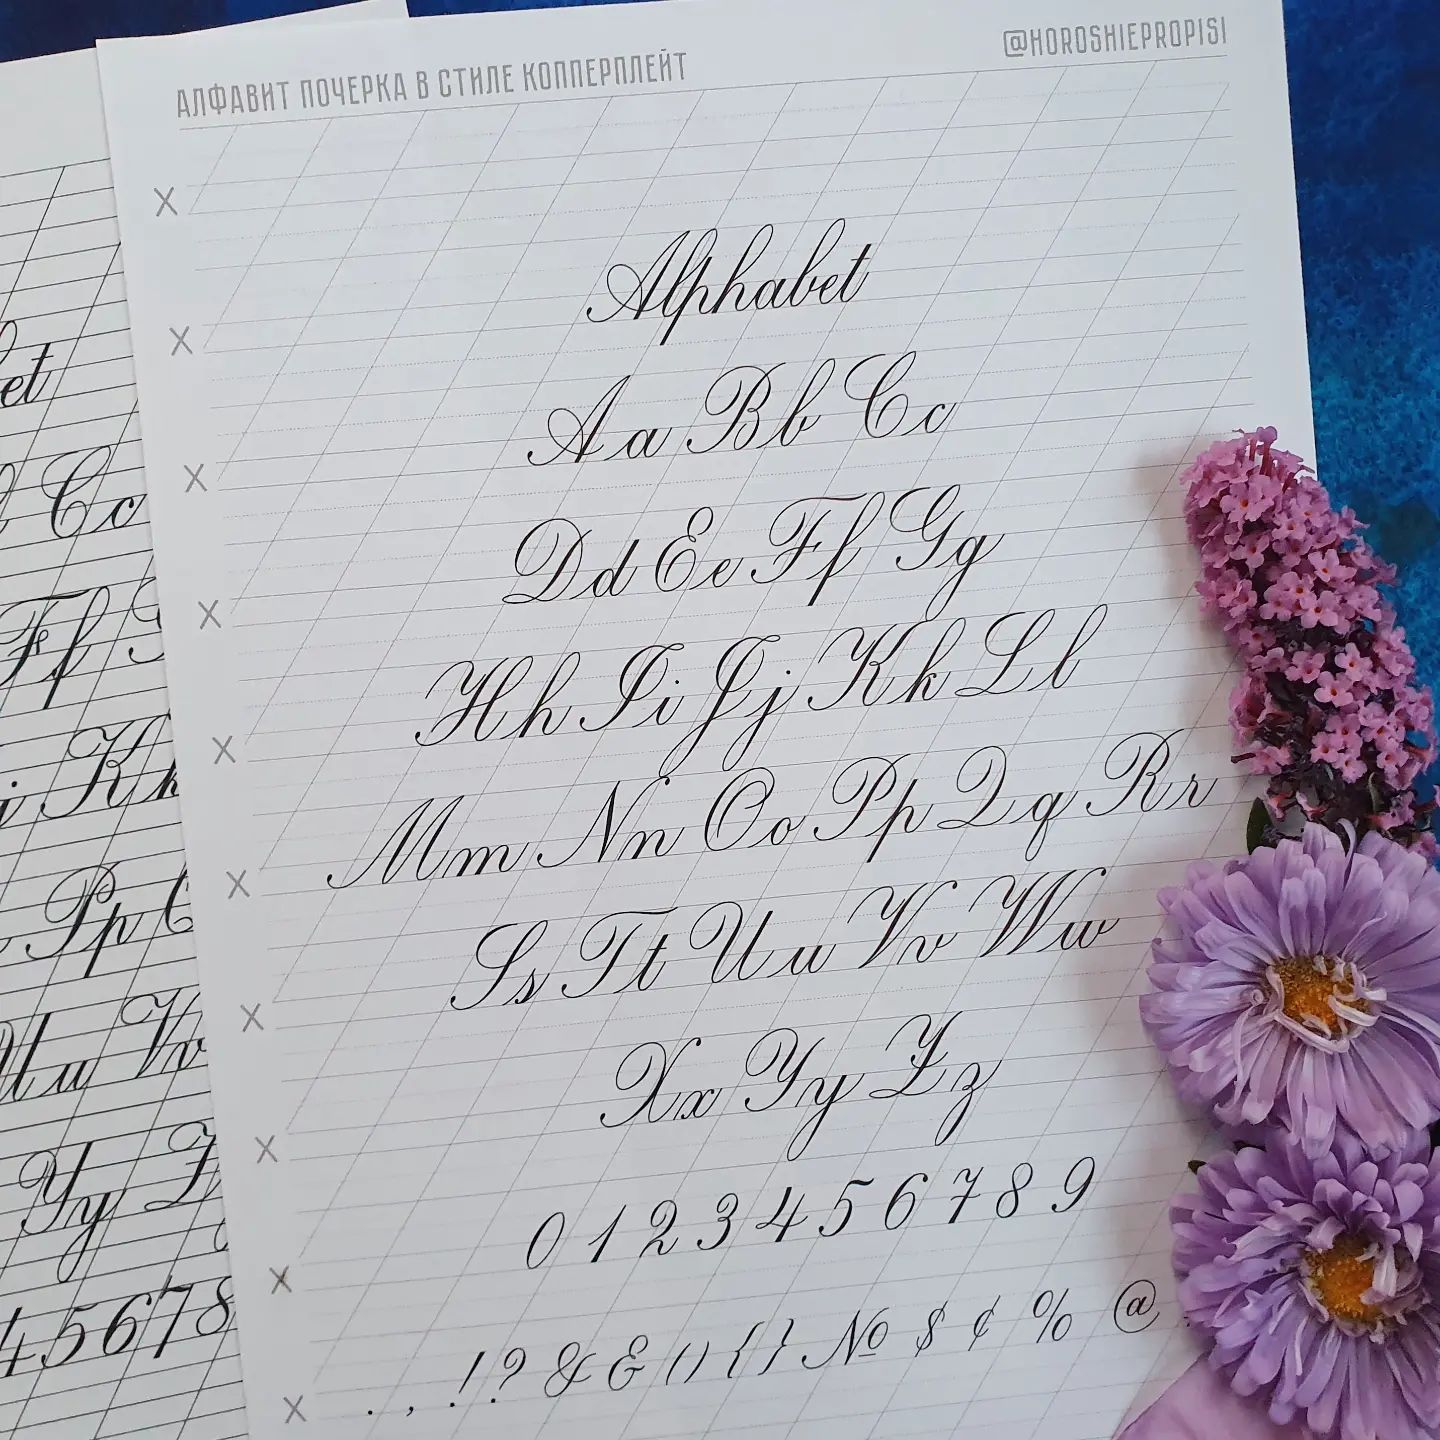 АЛФАВИТ ПОЧЕРКА В СТИЛЕ КОППЕРПЛЕЙТ
@HOROSHIEPROPISI
X
Alphabet
X
Aa Bb Cc
X
Dd Ee Ff Gg
X
Hh Ii Jj Kk Ll
X
Mm Nn Oo Pp Qq Rr
X
Ss Tt Uu Vv Ww
X
Xx Yy Zz
X
0 1 2 3 4 5 6 7 8 9
X
. , ! ? & & ( ) { } № $ ¢ % @
X
et
Cc
Ff
Kk
Pp
Uu Vv
Yy Z
4 5 6 7 8